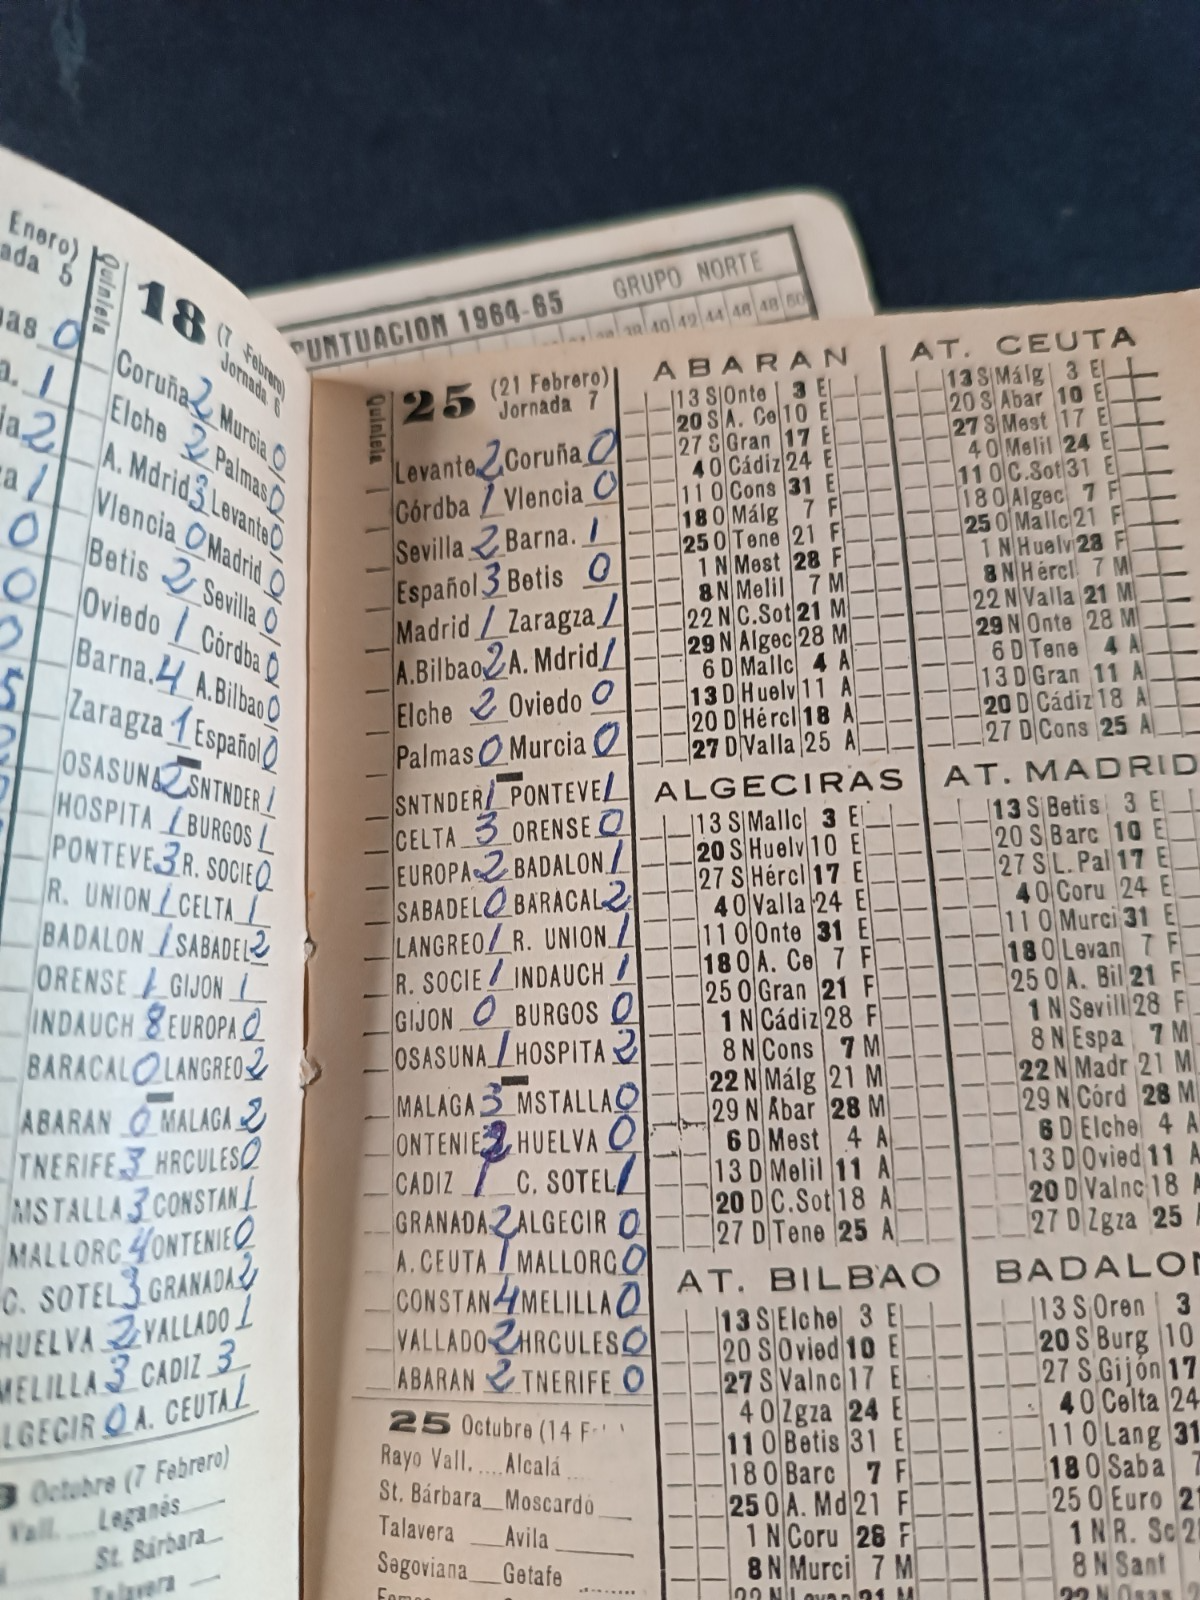 PUNTUACION 1964-65 GRUPO NORTE
38 40 42 44 46 48 50
Enero)
ada 5
as 0
a. 1
ia 2
za 1
0
0
0
5
Quiniela
18 (7 Febrero)
Jornada 6
Coruña 2 Murcia 0
Elche 2 Palmas 0
A. Mdrid 3 Levante 0
Vlencia 0 Madrid 0
Betis 2 Sevilla 0
Oviedo 1 Córdba 0
Barna. 4 A.Bilbao 0
Zaragza 1 Español 0
OSASUNA 2 SNTNDER 1
HOSPITA 1 BURGOS 1
PONTEVE 3 R. SOCIE 0
R. UNION 1 CELTA 1
BADALON 1 SABADEL 2
ORENSE 1 GIJON 1
INDAUCH 8 EUROPA 0
BARACAL 0 LANGREO 2
ABARAN 0 MALAGA 2
TNERIFE 3 HRCULES 0
MSTALLA 3 CONSTAN 1
MALLORC 4 ONTENIE 0
C. SOTEL 3 GRANADA 2
HUELVA 2 VALLADO 1
MELILLA 3 CADIZ 3
LGECIR 0 A. CEUTA 1
Octubre (7 Febrero)
Vall. Leganés
St. Bárbara
Talavera
Quiniela
25 (21 Febrero)
Jornada 7
Levante 2 Coruña 0
Córdba 1 Vlencia 0
Sevilla 2 Barna. 1
Español 3 Betis 0
Madrid 1 Zaragza 1
A.Bilbao 2 A. Mdrid 1
Elche 2 Oviedo 0
Palmas 0 Murcia 0
SNTNDER 1 PONTEVE 1
CELTA 3 ORENSE 0
EUROPA 2 BADALON 1
SABADEL 0 BARACAL 2
LANGREO 1 R. UNION 1
R. SOCIE 1 INDAUCH 1
GIJON 0 BURGOS 0
OSASUNA 1 HOSPITA 2
MALAGA 3 MSTALLA 0
ONTENIE 2 HUELVA 0
CADIZ 1 C. SOTEL 1
GRANADA 2 ALGECIR 0
A. CEUTA 1 MALLORC 0
CONSTAN 4 MELILLA 0
VALLADO 2 HRCULES 0
ABARAN 2 TNERIFE 0
25 Octubre (14 F
Rayo Vall. .... Alcalá
St. Bárbara Moscardó
Talavera Avila
Segoviana Getafe
ABARAN
13 S Onte 3 E
20 S A. Ce 10 E
27 S Gran 17 E
4 O Cádiz 24 E
11 O Cons 31 E
18 O Málg 7 F
25 O Tene 21 F
1 N Mest 28 F
8 N Melil 7 M
22 N C.Sot 21 M
29 N Algec 28 M
6 D Mallc 4 A
13 D Huelv 11 A
20 D Hércl 18 A
27 D Valla 25 A
ALGECIRAS
13 S Mallc 3 E
20 S Huelv 10 E
27 S Hércl 17 E
4 O Valla 24 E
11 O Onte 31 E
18 O A. Ce 7 F
25 O Gran 21 F
1 N Cádiz 28 F
8 N Cons 7 M
22 N Málg 21 M
29 N Abar 28 M
6 D Mest 4 A
13 D Melil 11 A
20 D C.Sot 18 A
27 D Tene 25 A
AT. BILBAO
13 S Elche 3 E
20 S Ovied 10 E
27 S Valnc 17 E
4 O Zgza 24 E
11 O Betis 31 E
18 O Barc 7 F
25 O A. Md 21 F
1 N Coru 28 F
8 N Murci 7 M
22 N Levan 21 M
AT. CEUTA
13 S Málg 3 E
20 S Abar 10 E
27 S Mest 17 E
4 O Melil 24 E
11 O C.Sot 31 E
18 O Algec 7 F
25 O Mallc 21 F
1 N Huelv 28 F
8 N Hércl 7 M
22 N Valla 21 M
29 N Onte 28 M
6 D Tene 4 A
13 D Gran 11 A
20 D Cádiz 18 A
27 D Cons 25 A
AT. MADRID
13 S Betis 3 E
20 S Barc 10 E
27 S L. Pal 17 E
4 O Coru 24 E
11 O Murci 31 E
18 O Levan 7 F
25 O A. Bil 21 F
1 N Sevill 28 F
8 N Espa 7 M
22 N Madr 21 M
29 N Córd 28 M
6 D Elche 4 A
13 D Ovied 11 A
20 D Valnc 18 A
27 D Zgza 25 A
BADALON
13 S Oren 3
20 S Burg 10
27 S Gijón 17
4 O Celta 24
11 O Lang 31
18 O Saba 7
25 O Euro 21
1 N R. Sc 2
8 N Sant
22 N Osas